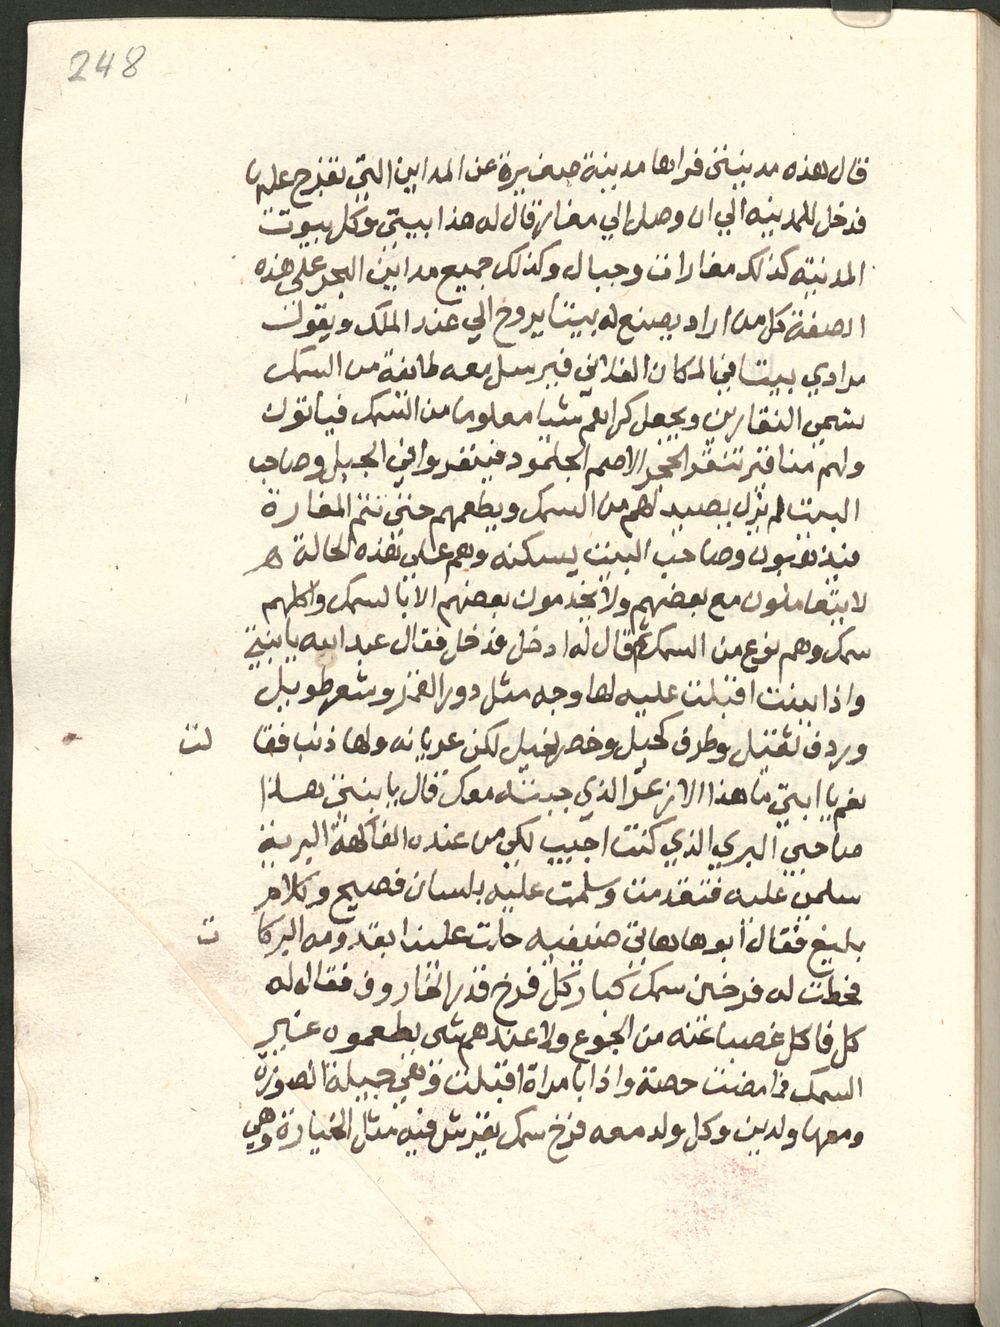 248
قال هذه مدينتي فراها مدينة صغيرة عن المداين التي تفرج عليها
فدخل للمدينه الي ان وصل الي مغارة قال له هذا بيتي وكل بيوت
المدينه كذلك مغارات وجبال وكذلك جميع مداين البحر علي هذه
الصفة كل من اراد يصنع له بيتا يروح الي عند الملك ويقول
مرادي بيتا في المكان الفلاني فيرسل معه طائفة من السمك
يسمي النقارين ويجعل كراهم شيا معلوما من السمك فياتون
ولهم مناقير تنقر الحجر الاصم الجلمود فينقروا في الجبل وصاحب
البيت لم يزل يصيد لهم من السمك ويطعمهم حتي تتم المغارة
فيذهبون وصاحب البيت يسكنه وهم علي هذه الحالة
لا يتعاملون مع بعضهم ولا يخدمون بعضهم الا بالسمك واكلهم
سمك وهم نوع من السمك ثم قال له ادخل فدخل فقال عبد الله يا بنتي
واذا ببنت اقبلت عليه لها وجه مثل دور القمر وشعر طويل
وردف ثقيل وطرف كحيل وخصر نحيل لكن عريانه ولها ذنب فقا لت
نعم يا ابتي ما هذا الازعر الذي جبته معك قال يا بنتي هذا
صاحبي البري الذي كنت اجيب لكي من عنده الفاكهة البرية
سلمي عليه فتقدمت وسلمت عليه بلسان فصيح وكلام
بليغ فقال ابوها هاتي ضيفيه حلت علينا بقدومه البركا ت
فحطت له فرخين سمك كبار كل فرخ قدر الخاروف فقال له
كل فاكل غصبا عنه من الجوع ولا عندهم شي يطعموه غير
السمك فما مضت حصة واذا بامراة اقبلت وهي جميلة الصورة
ومعها ولدين وكل ولد معه فرخ سمك يقرش فيه مثل الخيارة وهي